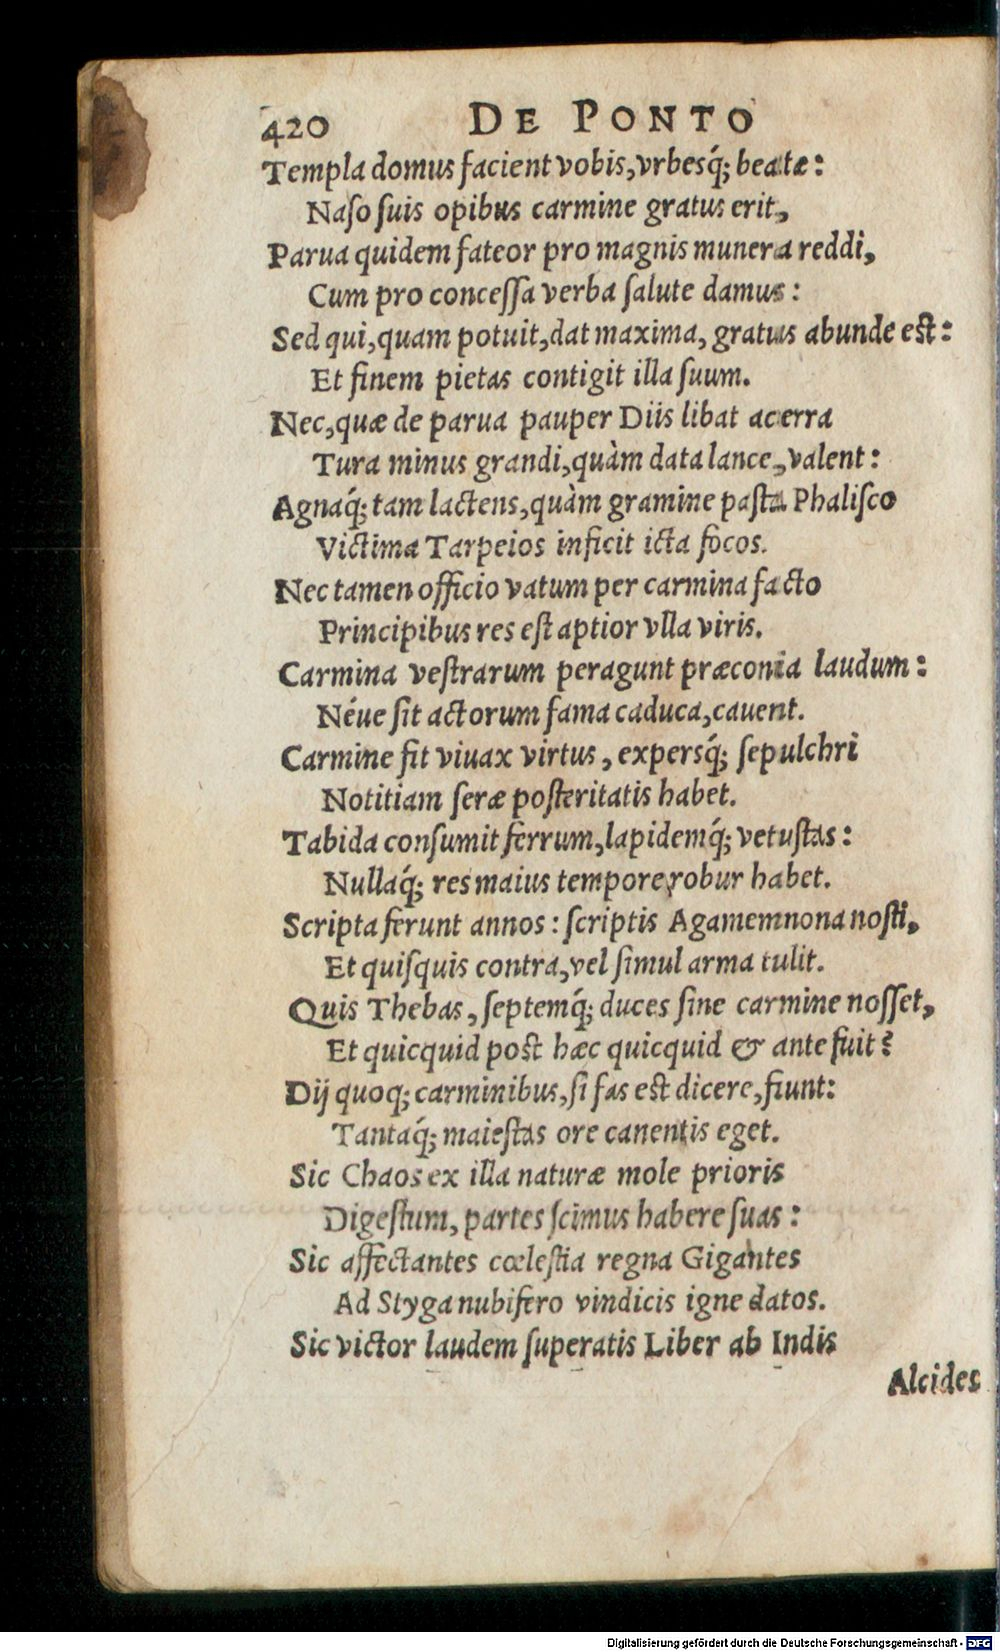 420 DE PONTO
Templa domus facient vobis, vrbesq́; beatæ:
Naſo ſuis opibus carmine gratus erit,
Parua quidem fateor pro magnis munera reddi,
Cum pro conceſſa verba ſalute damus:
Sed qui, quam potuit, dat maxima, gratus abunde est:
Et finem pietas contigit illa ſuum.
Nec, quæ de parua pauper Diis libat acerra
Tura minus grandi, quàm data lance, valent:
Agnaq́; tam lactens, quàm gramine paſta Phaliſco
Victima Tarpeios inficit icta focos.
Nec tamen officio vatum per carmina facto
Principibus res eſt aptior vlla viris.
Carmina veſtrarum peragunt præconia laudum:
Néue ſit actorum fama caduca, cauent.
Carmine fit viuax virtus, expersq́; ſepulchri
Notitiam ſeræ poſteritatis habet.
Tabida conſumit ferrum, lapidemq́; vetuſtas:
Nullaq́; res maius tempore, robur habet.
Scripta ferunt annos: ſcriptis Agamemnona noſti,
Et quiſquis contra, vel ſimul arma tulit.
Quis Thebas, ſeptemq́; duces ſine carmine noſſet,
Et quicquid post hæc quicquid & ante fuit?
Dij quoq; carminibus, ſi fas est dicere, fiunt:
Tantaq́; maieſtas ore canentis eget.
Sic Chaos ex illa naturæ mole prioris
Digeſtum, partes ſcimus habere ſuas:
Sic affectantes cœleſtia regna Gigantes
Ad Styga nubifero vindicis igne datos.
Sic victor laudem ſuperatis Liber ab Indis
Alcides
Digitalisierung gefördert durch die Deutsche Forschungsgemeinschaft - DFG